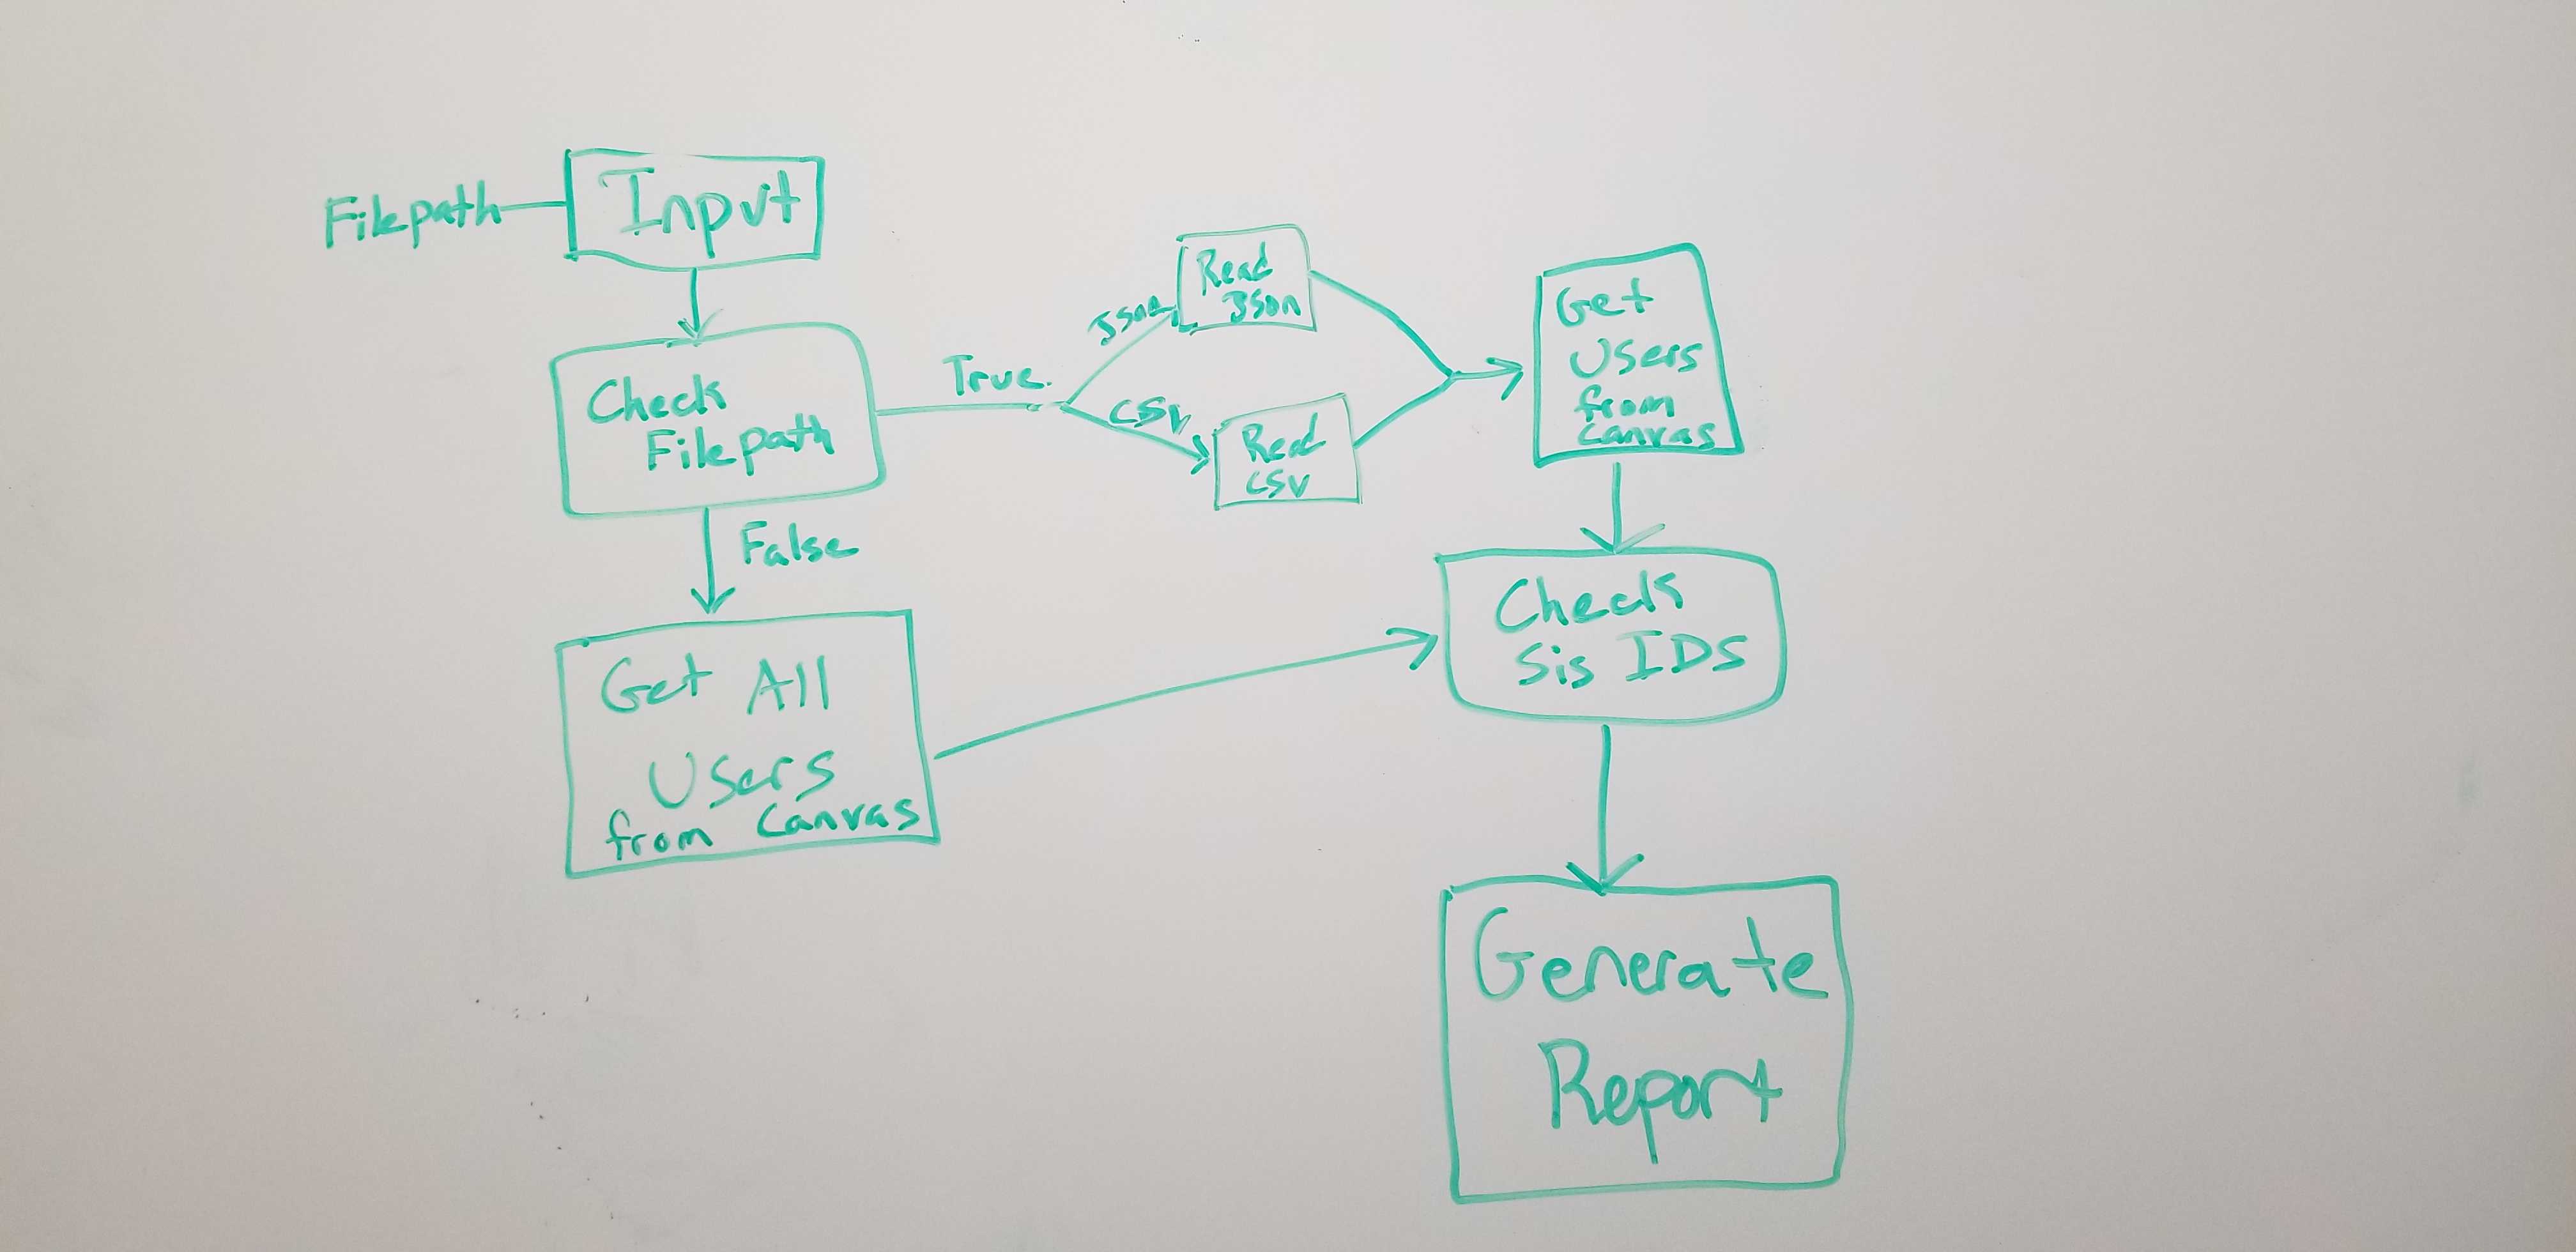 Filepath
Input
Check
Filepath
True
Json
Read
Json
CSV
Read
CSV
Get
Users
from
Canvas
False
Get All
Users
from Canvas
Check
Sis IDS
Generate
Report